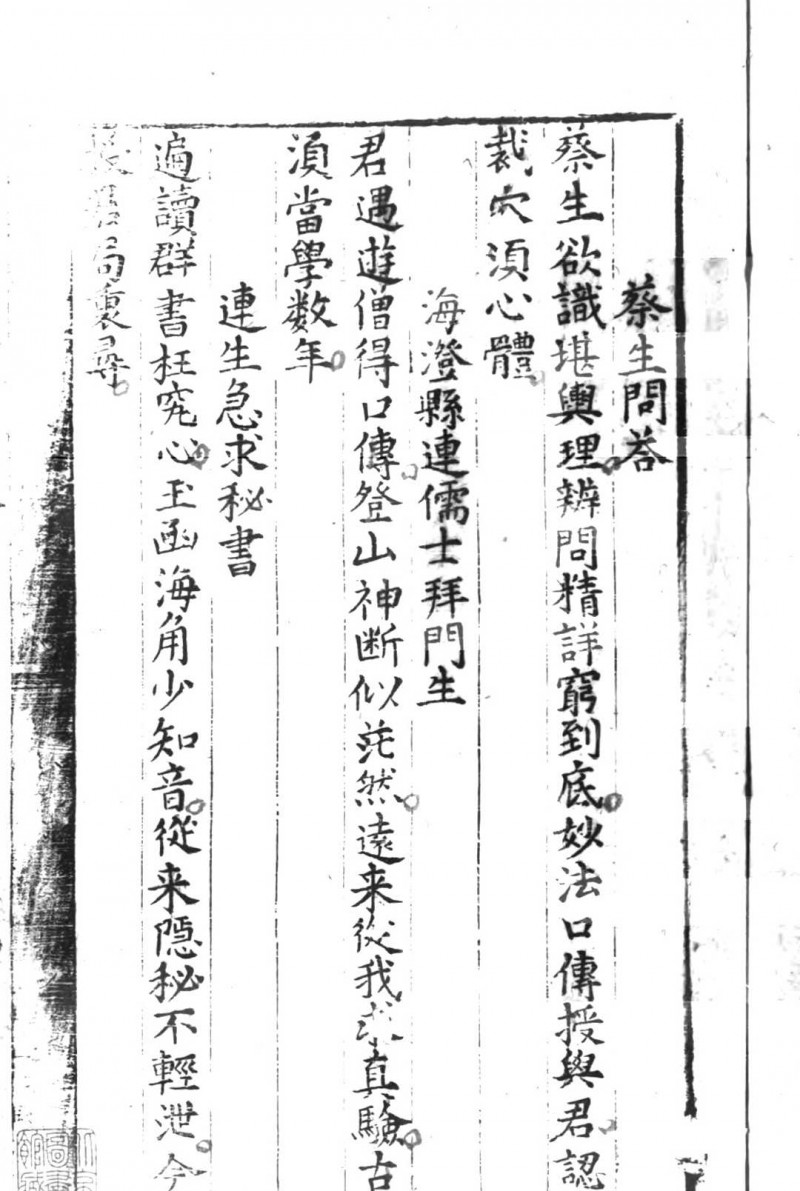 蔡生問荅
蔡生欲識堪輿理辨問精詳窮到底妙法口傳授與君認
裁穴湏心體
海澄縣連儒士拜門生
君遇遊僧得口傳登山神断似茫然遠来從我求真驗古
湏當學数年
連生急求秘書
遍讀群書枉究心玉函海角少知音從来隱秘不輕泄今
局裏尋